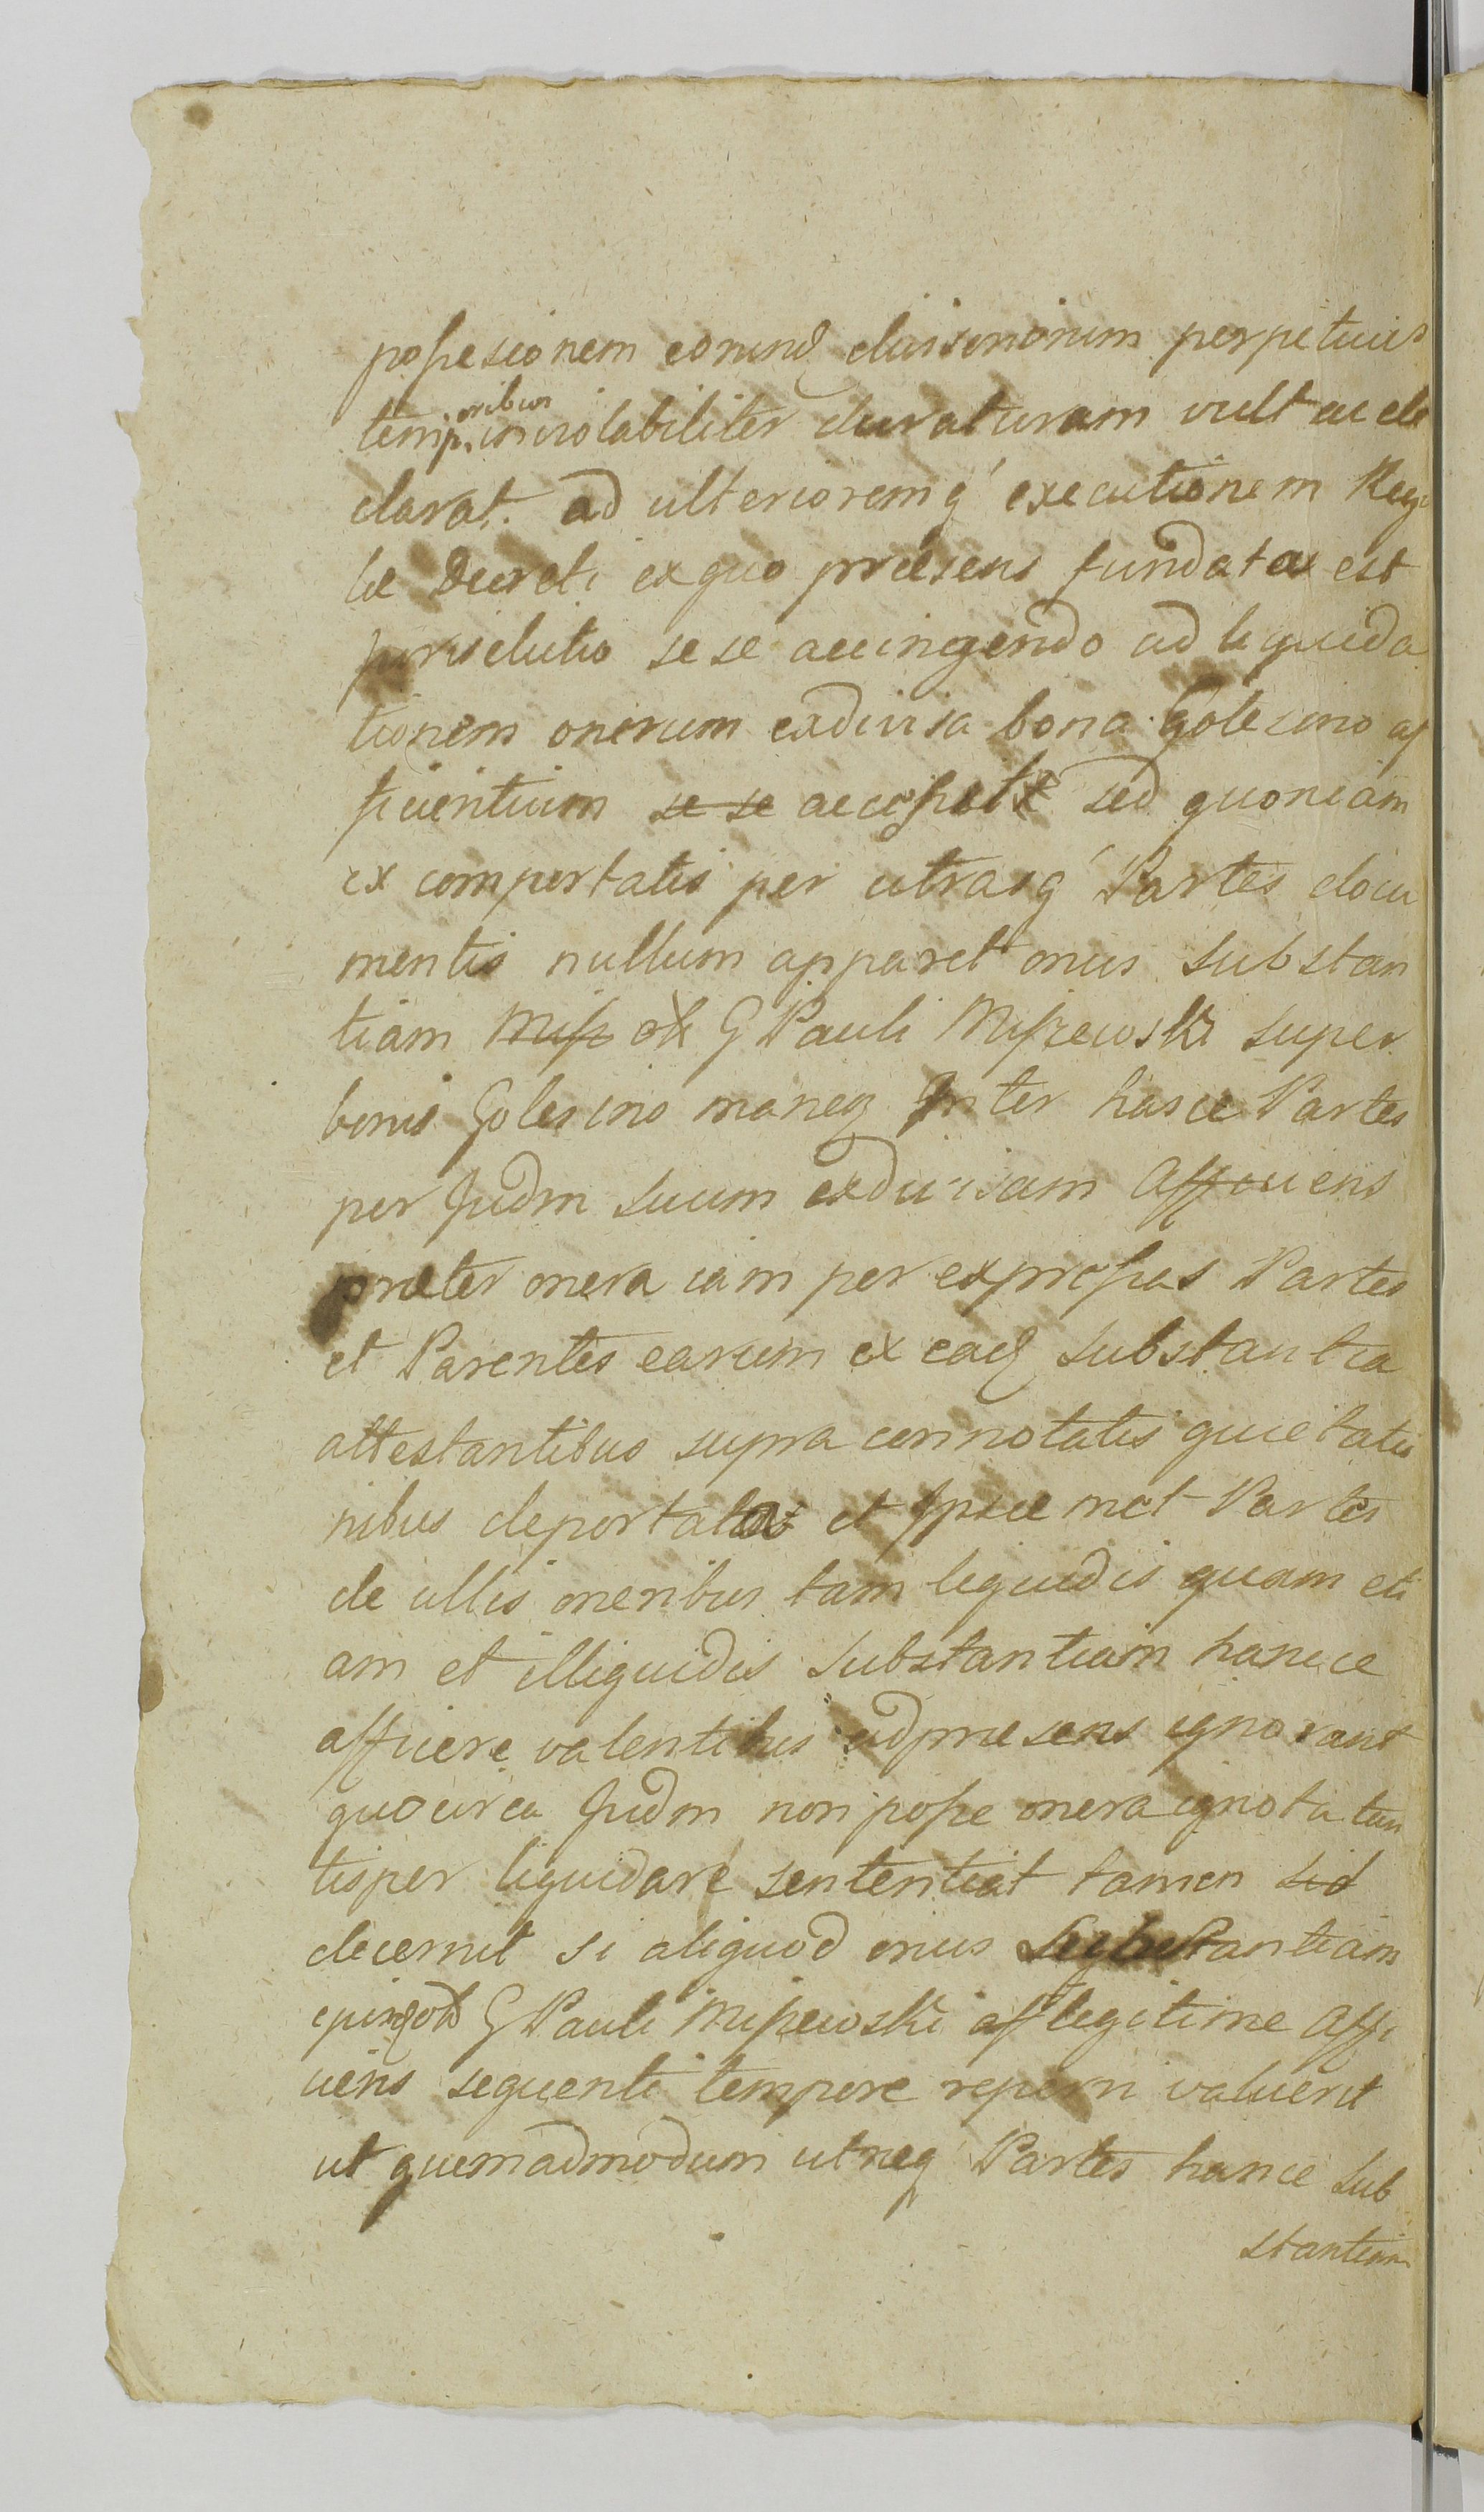 possesionem eorund divisionum perpetuis
temp oribus inviolabiliter duraturam vult ac de
clarat. ad ulterioremq executionem Reg
læ Decreti ex quo præsens fundata est
jurisdictio sese accingendo ad liquida
tionem onerum exdivisa bona Golesino af
ficientium se se accessit sed quoniam
ex comportatis per utrasq Partes docu
mentis nullum apparet onus substan
tiam Misz ol G Pauli Miszewski super
bonis Golesino maneq Inter hasce Partes
per Judm suum exdivisam afficiens
præter onera iam per expressas Partes
et Parentes earum ex ead substantia
attestantibus supra connotatis quietatio
nibus deportata et Ipsæ met Partes
de ullis oneribus tam liquidis quam eti
am et illiquidis substantiam hancce
afficere valentibus adpræsens ignorant
quocirca Judm non posse onera ignota tan
tisper liquidare sententiat tamen sid
decernit si aliquod onus Substantiam
G Pauli Miszewski af legitime affi
ciens sequenti tempore reperiri valuerit
ut quemadmodum utræq Partes hance sub
stantiam